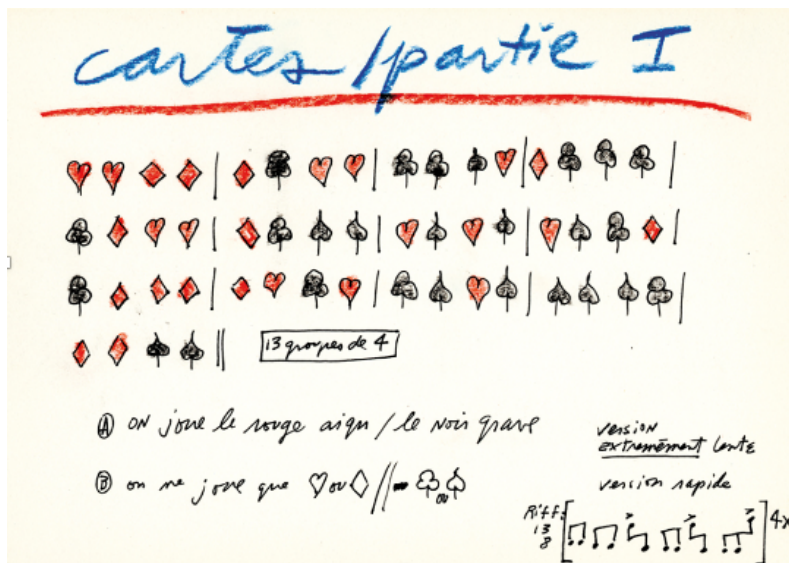 cartes/partie I
13 groupes de 4
Ⓐ on joue le rouge aigu / le noir grave
Ⓑ on ne joue que ♡ ou ♢ // ♧ ou ♤
version
extrêmement lente
version rapide
Riff:
13
8
4x